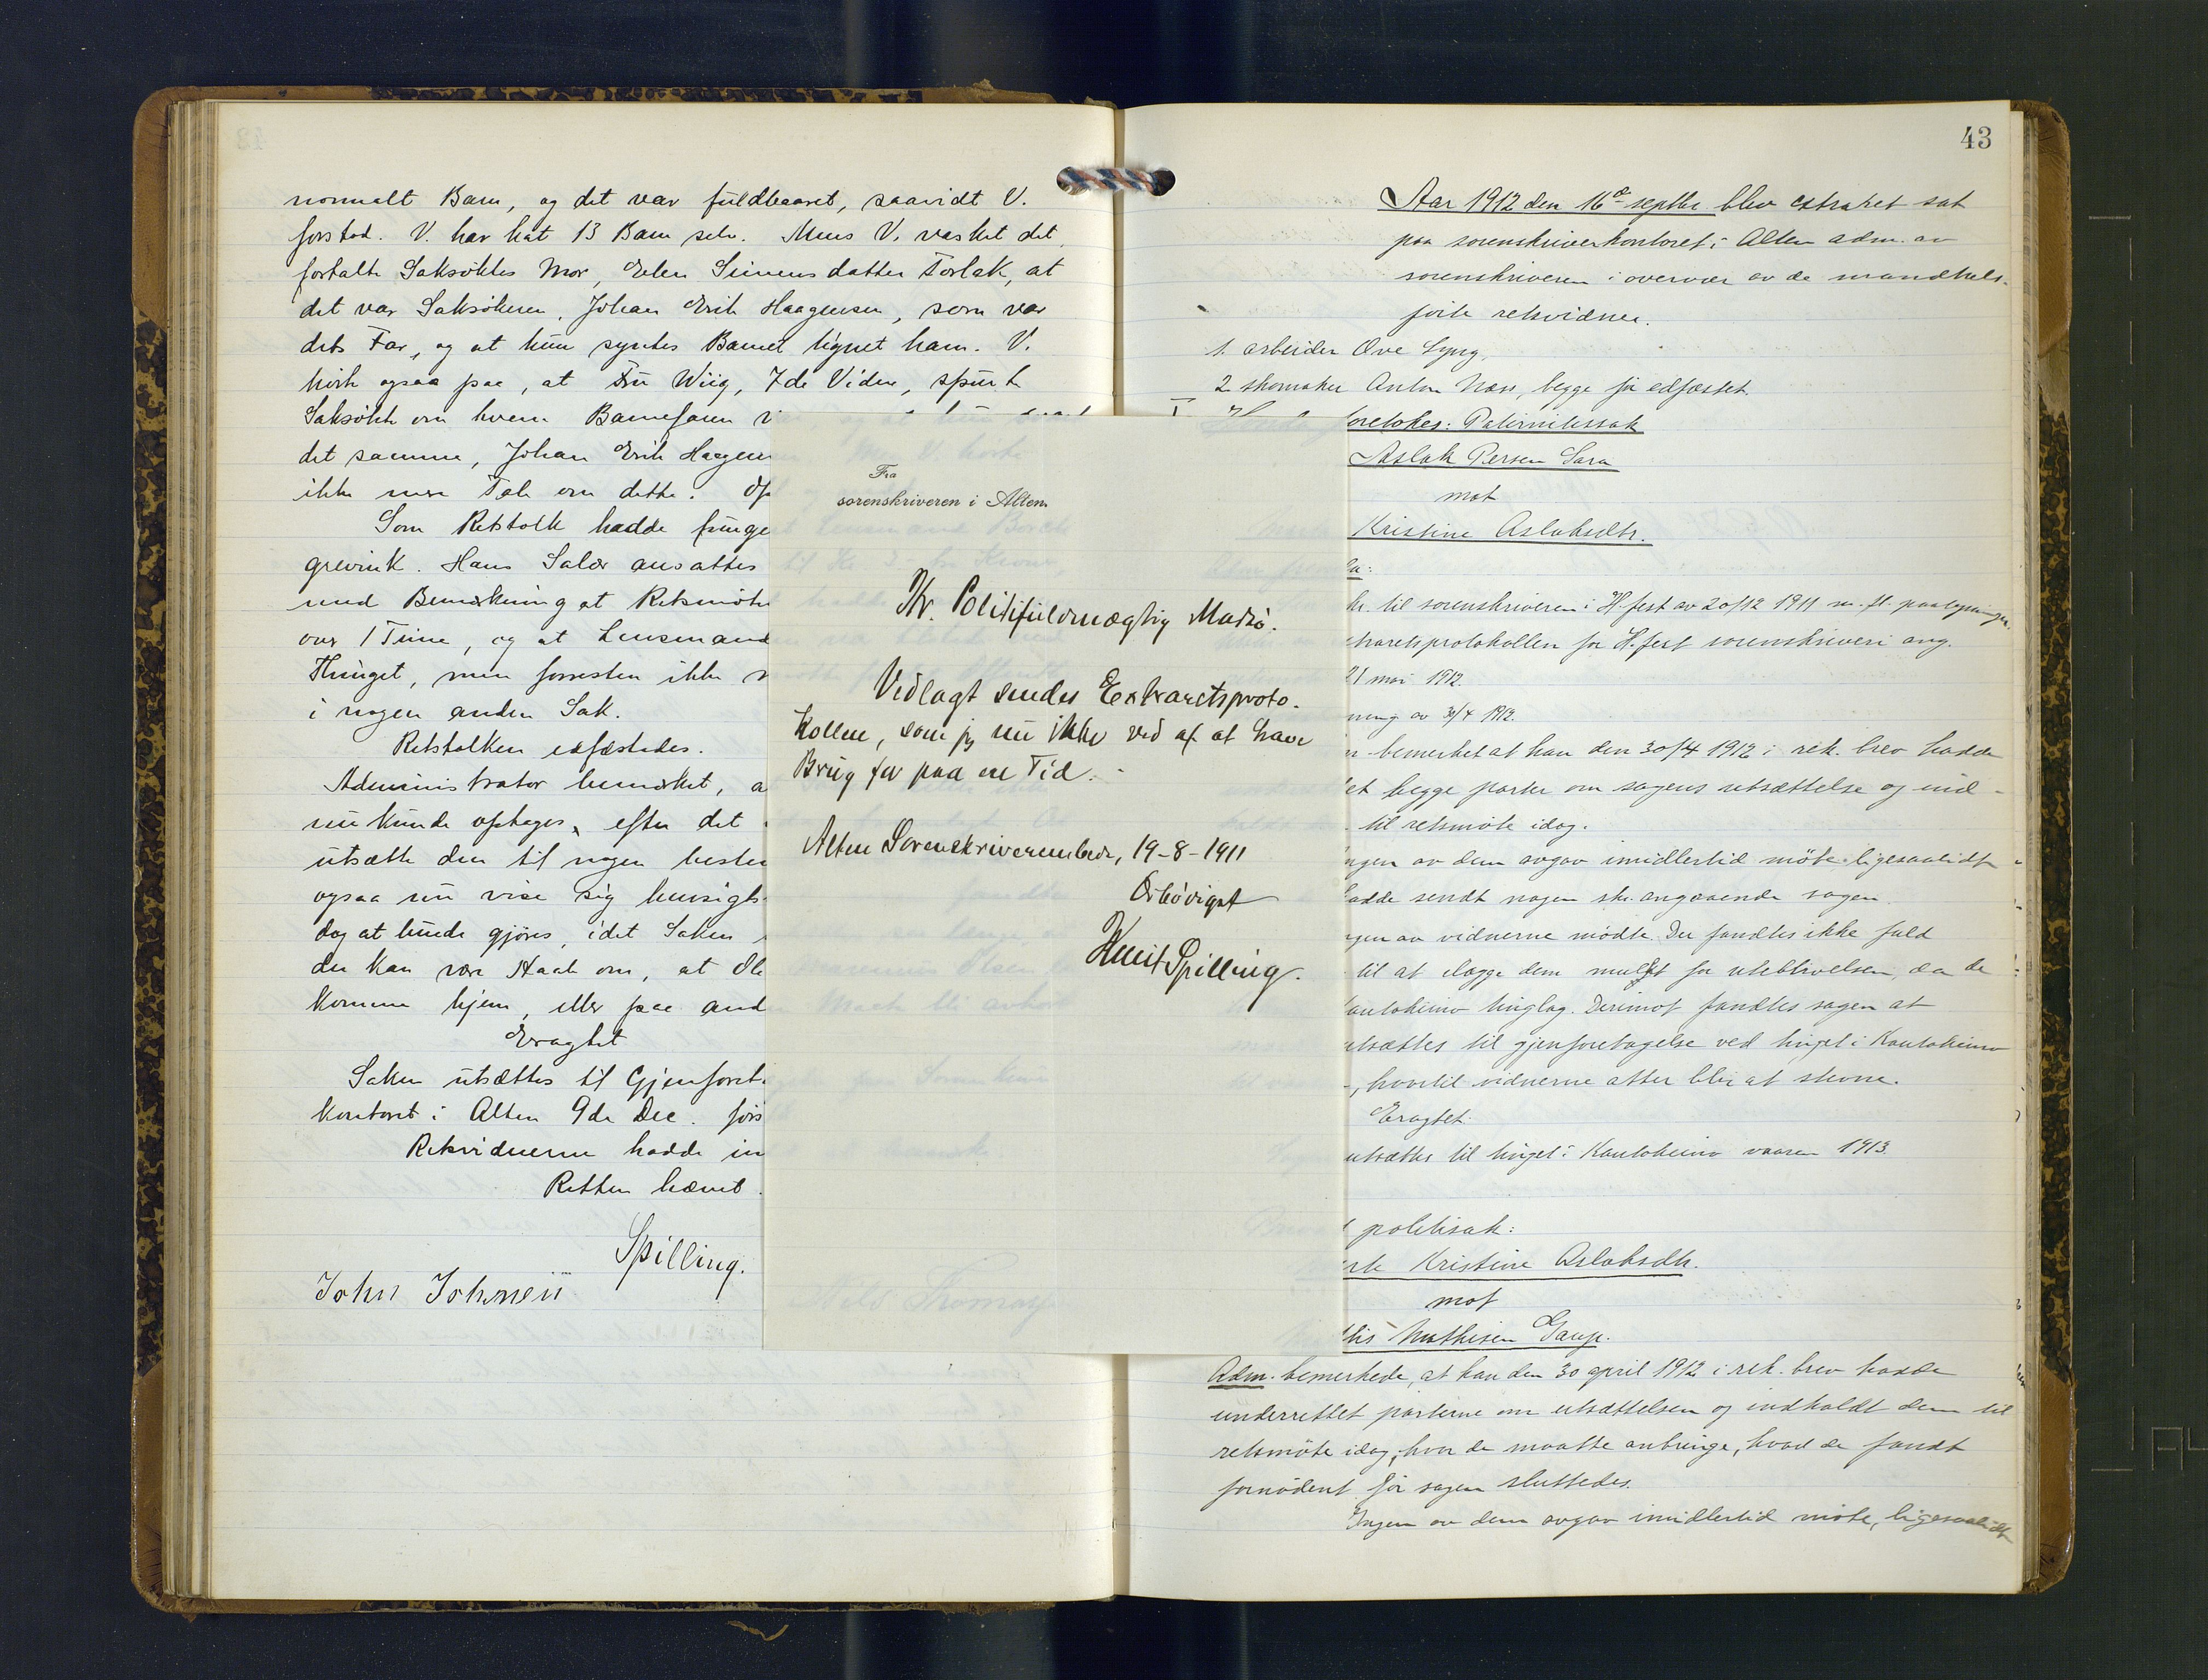 normalt Barn, og det var fuldbaaret, saavidt V.
forstod. V. har hat 13 Barn selv. Mens V. vasket det,
fortalte Saksöktes Mor, Elen Simensdatter Torlak, at
det var Saksökeren, Johan Erik Haagensen, som var
dets Far, og at hun syntes Barnet lignet ham. V.
hørte ogsaa paa, at Fru Wiig, 7de Vidne, spurte
Saksökte om hvem Barnefaren
det samme, Johan Erik Haagen
ikke mere Tale om dette.
Som Retstolk hadde funge
grevink. Hans Salær ansattes
med Bemerkning at Retsmöte
over 1 Time, og at Lensmand
Thinget, men forresten ikke
i nogen anden Sak.
Retstolken edfæstedes.
Administrator bemerket, a
nu kunde optages, efter det
utsætte den til nogen
ogsaa nu vise sig hensigts
dog at kunde gjöres, idet Saken
der kan være Haab om, at
komme hjem, eller paa and
Eragtet
Saken utsættes til Gjenforet
kontoret i Alten 9de Dec. förs
Retsvidnerne hadde in
Retten hævet.
Spilling.
John Johnsen
Fra
sorenskriveren i Alten
Hr. Politifuldmægtig Madsö.
Vedlagt sendes Extraretsproto-
kollen, som jeg nu ikke ved af at have
Brug for paa en Tid. -
Alten Sorenskriverembede, 19-8-1911
Ærbödigst
Knut Spilling.
43
Aar 1912 den 16de septbr blev extraret sat
paa sorenskriverkontoret i Alten adm. av
sorenskriveren i overvær av de mandtals-
förte retsvidner.
1. arbeider Ove Lyng,
2 skomaker Anton Næss, begge för edfæstet.
foretokes: Paternitetssak
Aslak Persen Sara
mot
Kristine Aslaksdtr.
kr. til sorenskriveren i H.fest av 20/12 1911 m. fl. paategninger.
traretsprotokollen for H.fest sorenskriveri ang.
21 mai 1912.
ning av 30/4 1912.
bemerket at han den 30/4 1912 i rek. brev hadde
et begge parter om sagens utsættelse og ind-
til retsmöte idag.
ngen av dem avgav imidlertid möte ligesaalidt
hadde sendt nogen skr. angaaende sagen.
ngen av vidnerne mödte. Der fandtes ikke fuld
til at ilægge dem mulkt for uteblivelsen da de
autokeino tinglag. Derimot fandtes sagen at
utsættes til gjenforetagelse ved tinget i Kautokeino
, hvortil vidnerne atter blir at stevne.
Eragtet:
utsættes til tinget i Kautokeino vaaren 1913.
politisak:
Kristine Aslaksdtr.
mot
Mathisen Gaup.
Adm. bemerkede, at han den 30 april 1912 i rek. brev hadde
underrettet parterne om utsættelsen og indkaldt dem til
retsmöte idag, hvor de maatte anbringe, hvad de fandt
fornödent för sagen sluttedes.
Ingen av dem avgav imidlertid möte, ligesaalidt